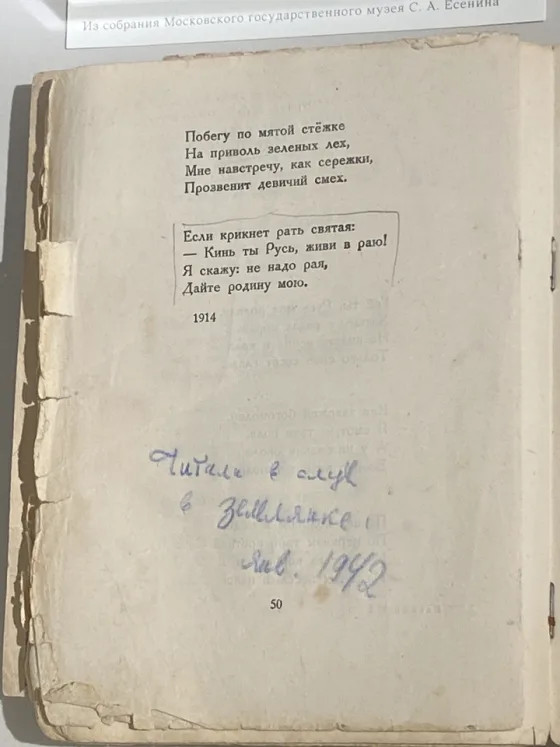 Из собрания Московского государственного музея С. А. Есенина
Побегу по мятой стёжке
На приволь зеленых лех,
Мне навстречу, как сережки,
Прозвенит девичий смех.
Если крикнет рать святая:
— Кинь ты Русь, живи в раю!
Я скажу: не надо рая,
Дайте родину мою.
1914
Читали в слух
в землянке.
янв. 1942
50